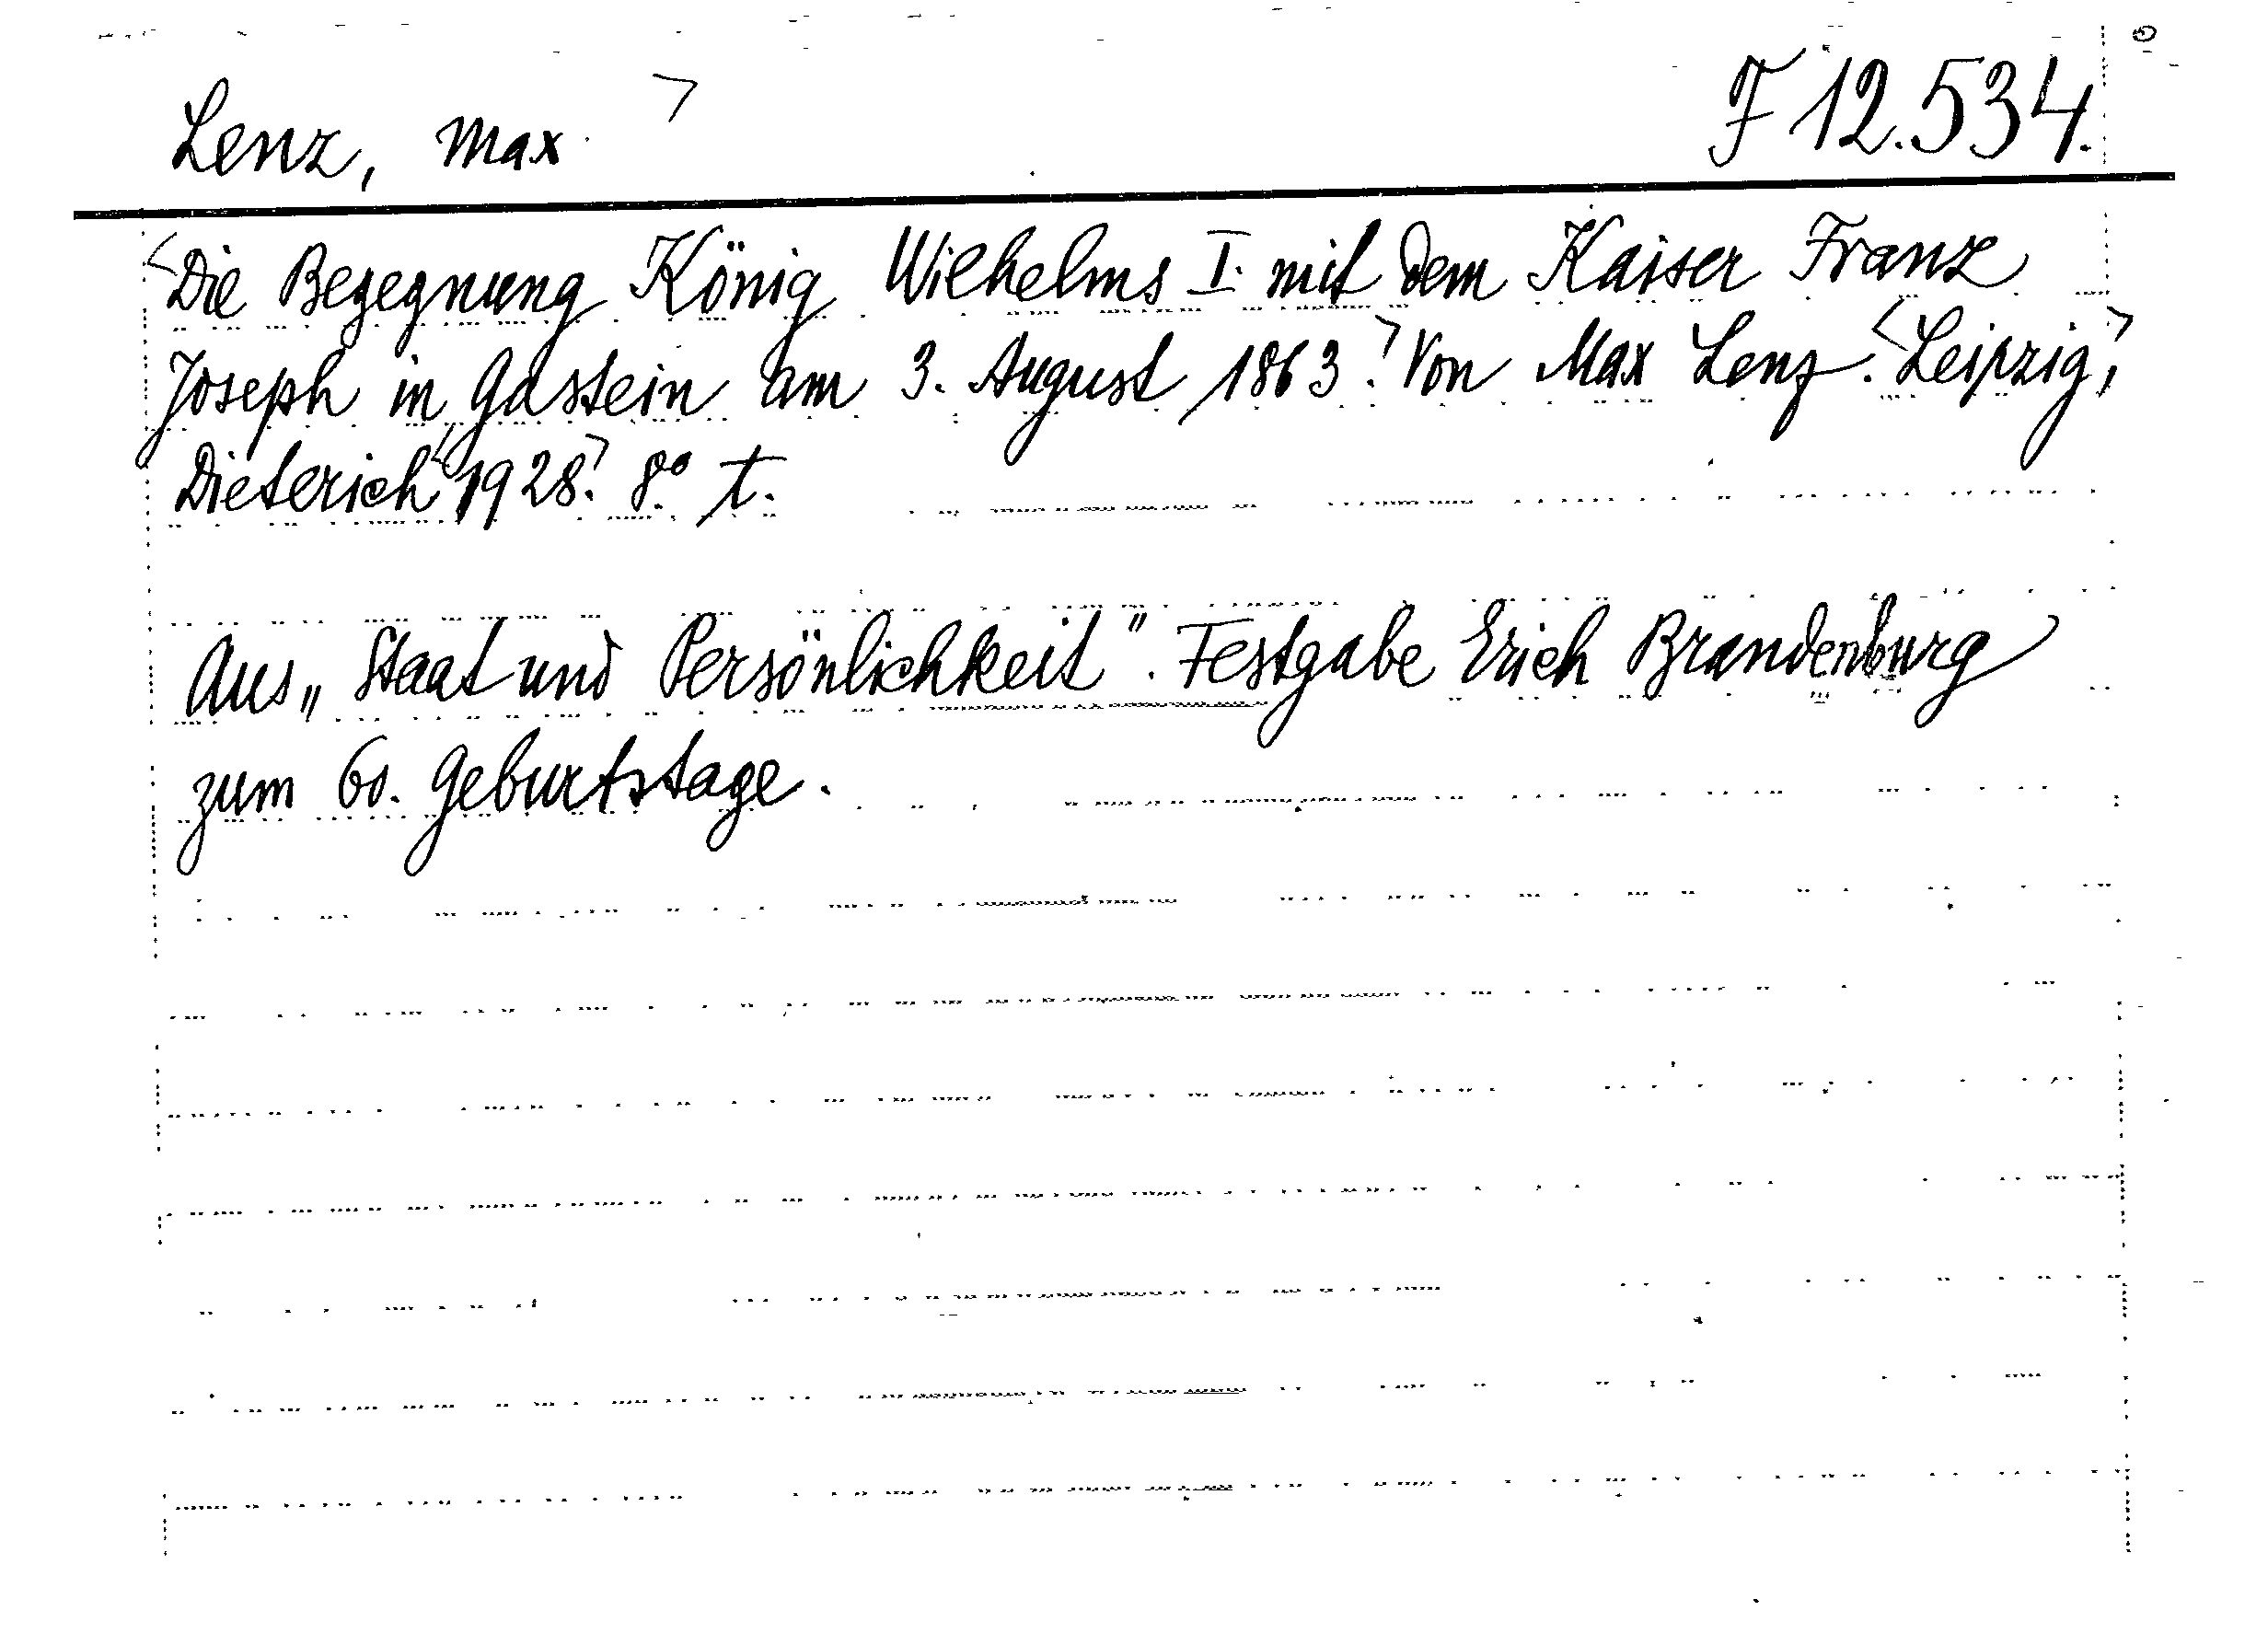 Lenz, Max F 12.534.
Die Begegnung König Wilhelms I. mit dem Kaiser Franz
Joseph in Gastein am 3. August 1863. Von Max Lenz. Leipzig,
Dieterich 1928. 8° t.
Aus „Staat und Persönlichkeit". Festgabe Erich Brandenburg
zum 60. Geburtstage.